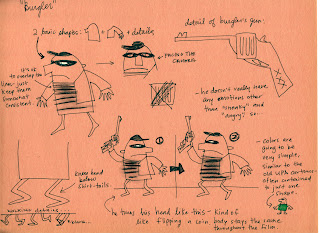 "Burglar"
2 basic shapes:
+
+ details
detail of burglar's gun:
FACING THE
CAMERA
it's OK
to overlap the
lines - just
keep them
somewhat
consistent.
- he doesn't really have
any emotions other
than "sneaky" and
"angry" so.
knees bend
below
shirt-tails.
- colors are
going to be
very simple,
similar to the
old UPA cartoons -
often contained
to just one
shape.
he turns his head like this - kind of
like flipping a coin. body stays the same
throughout the film.